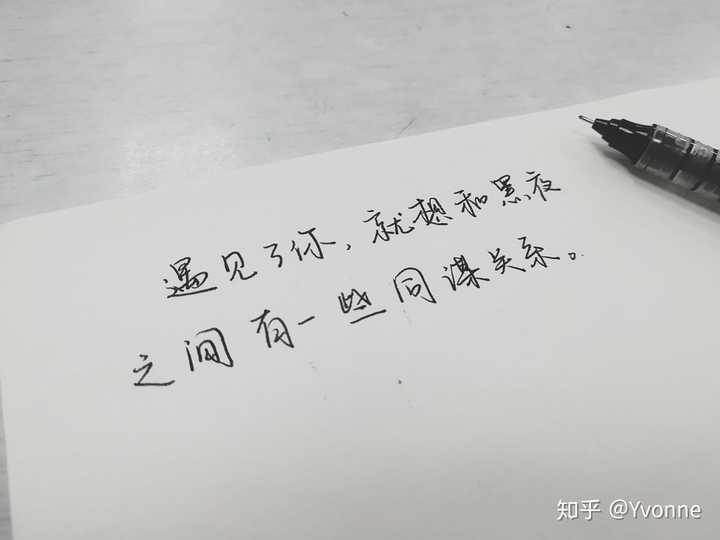 遇见了你，就想和黑夜
之间有一些同谋关系。
知乎 @Yvonne